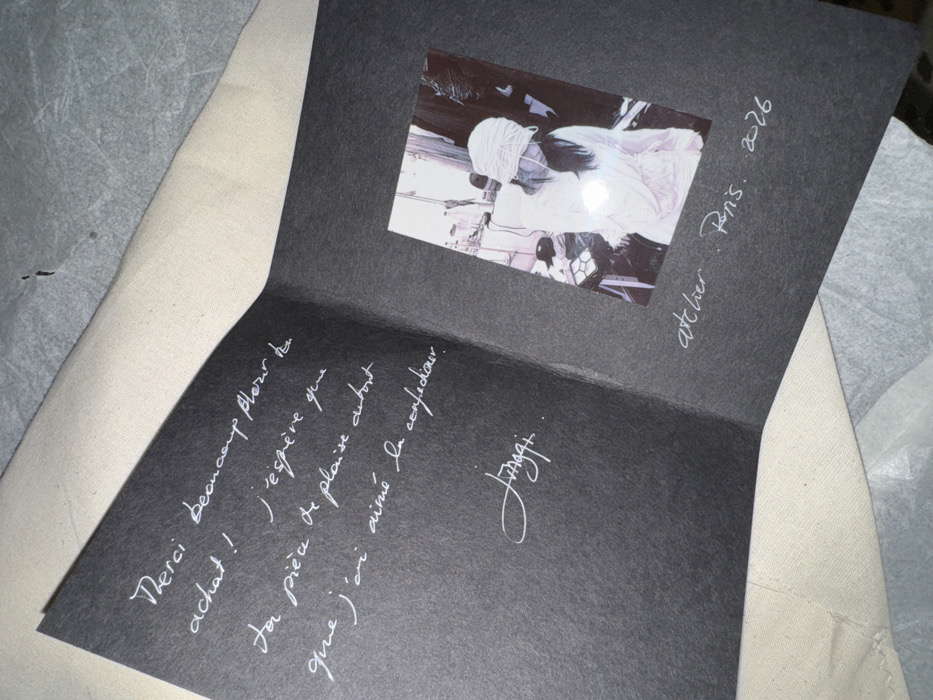 atelier . Paris . 2026
Merci beaucoup pour ton
achat ! j'espère que
ta pièce te plaise autant
que j'ai aimé la